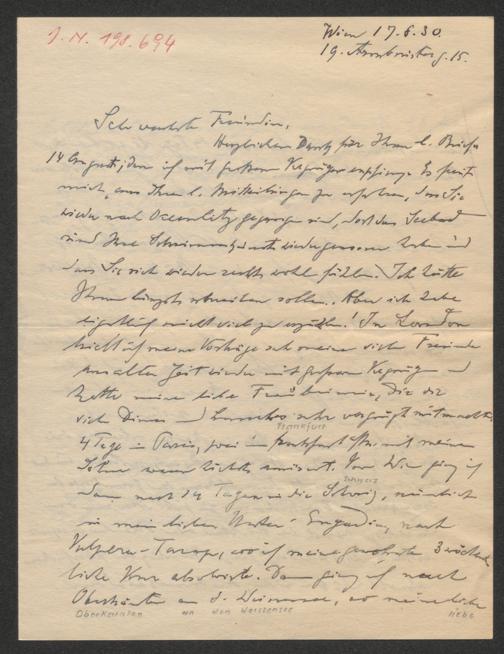 J. N. 198.694
Wien 17.8.30.
19. Armbrusterg. 15.
Sehr verehrte Freundin,
Herzlichen Dank für Ihren l. Brief
14 August, den ich mit großem Vergnügen empfing. Es freut
mich, aus Ihren l. Mitteilungen zu erfahren, dass Sie
wieder nach Ocean City gezogen sind, dort das Seebad
und Ihre wieder genossen haben und
dass Sie sich wieder recht wohl fühlen. Ich hätte
Ihnen längst schreiben sollen. Aber ich habe
eigentlich nicht viel zu erzählen! In London
hielt ich meine Vorträge, sah meine vielen Freunde
aus alter Zeit wieder mit großem Vergnügen und
hatte meine liebe Frau bei mir, die die
vielen Dinners und Lunches sehr vergnügt mitmachte.
Frankfurt
4 Tage in Paris, zwei in Frankfurt a/M. mit meinem
Sohne waren höchst amüsant. Von Wien ging ich
Schweiz
dann nach 14 Tagen in die Schweiz, nämlich
in mein liebes Unter-Engadin, nach
Vulpera-Tarasp, wo ich meine gewohnte 3 wöchent-
liche Kur absolvierte. Dann ging ich nach
Oberkärnten an d. Weissensee, wo meine liebe
Oberkärnten an den Weissensee liebe